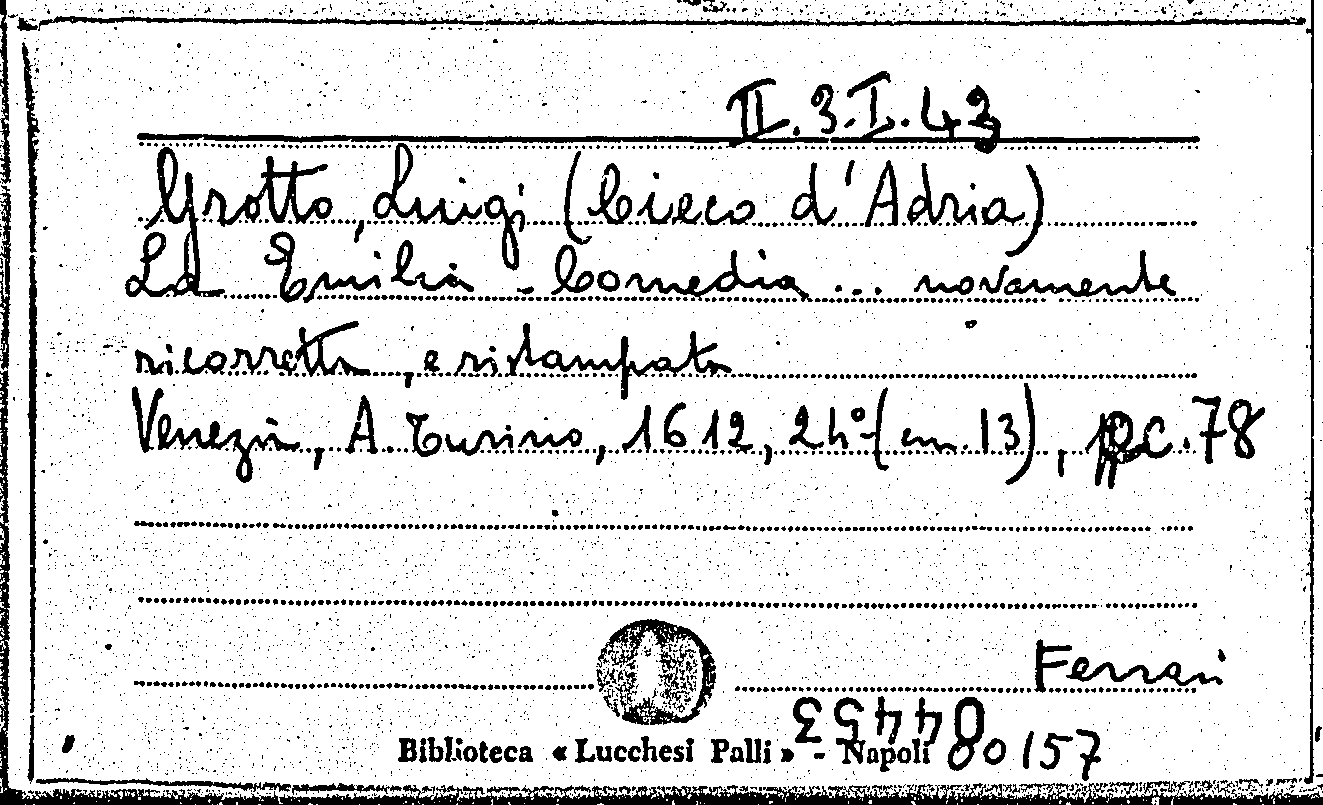 II.3.I.43
Grotto, Luigi (Cieco d'Adria)
La Emilia - Comedia ... novamente
ricorretta, e ristampata
Venezia, A. Turino, 1612, 24º (cm. 13), cc. 78
Ferrari
04453
Biblioteca « Lucchesi Palli » - Napoli 00157